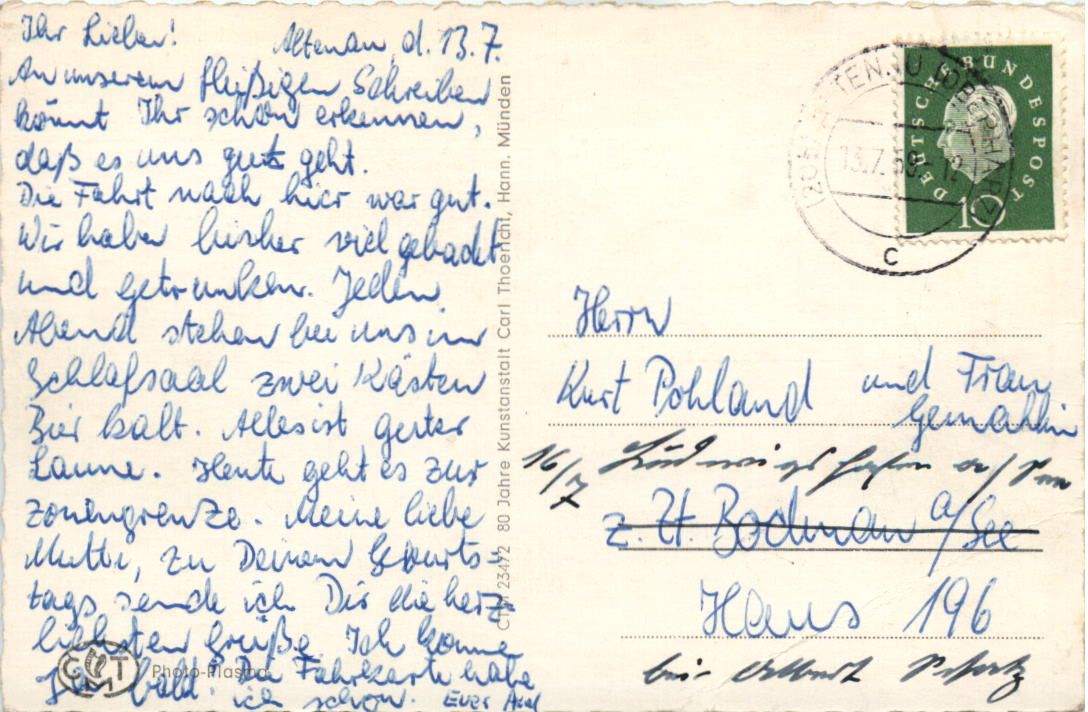 Ihr Lieben!
Altenau, d. 13.7.
An unserem fleißigen Schreiben
könnt Ihr schön erkennen,
daß es uns gut geht.
Die Fahrt nach hier war gut.
Wir haben bisher viel gebadet
und getrunken. Jeden
Abend stehen bei uns im
Schlafsaal zwei Kästen
Bier kalt. Alles ist guter
Laune. Heute geht es zur
Zonengrenze. Meine liebe
Mutti, zu Deinem Geburts=
tags sende ich Dir die herz=
lichsten Grüße. Ich komme
bald. Die Fahrkarte habe
ich schon. Euer Axel
CTM 23472 80 Jahre Kunstanstalt Carl Thoericht, Hann. Münden
CMT
Photo-Plasma
(20b) ALTENAU (OBERHARZ)
13.7.59.-12
c
DEUTSCHE BUNDESPOST
10
Herrn
Kurt Pohland und Frau
Gemahlin
16/7 Ludwigshafen a/
z. Zt. Bodman a/See
Haus 196
bei Albert